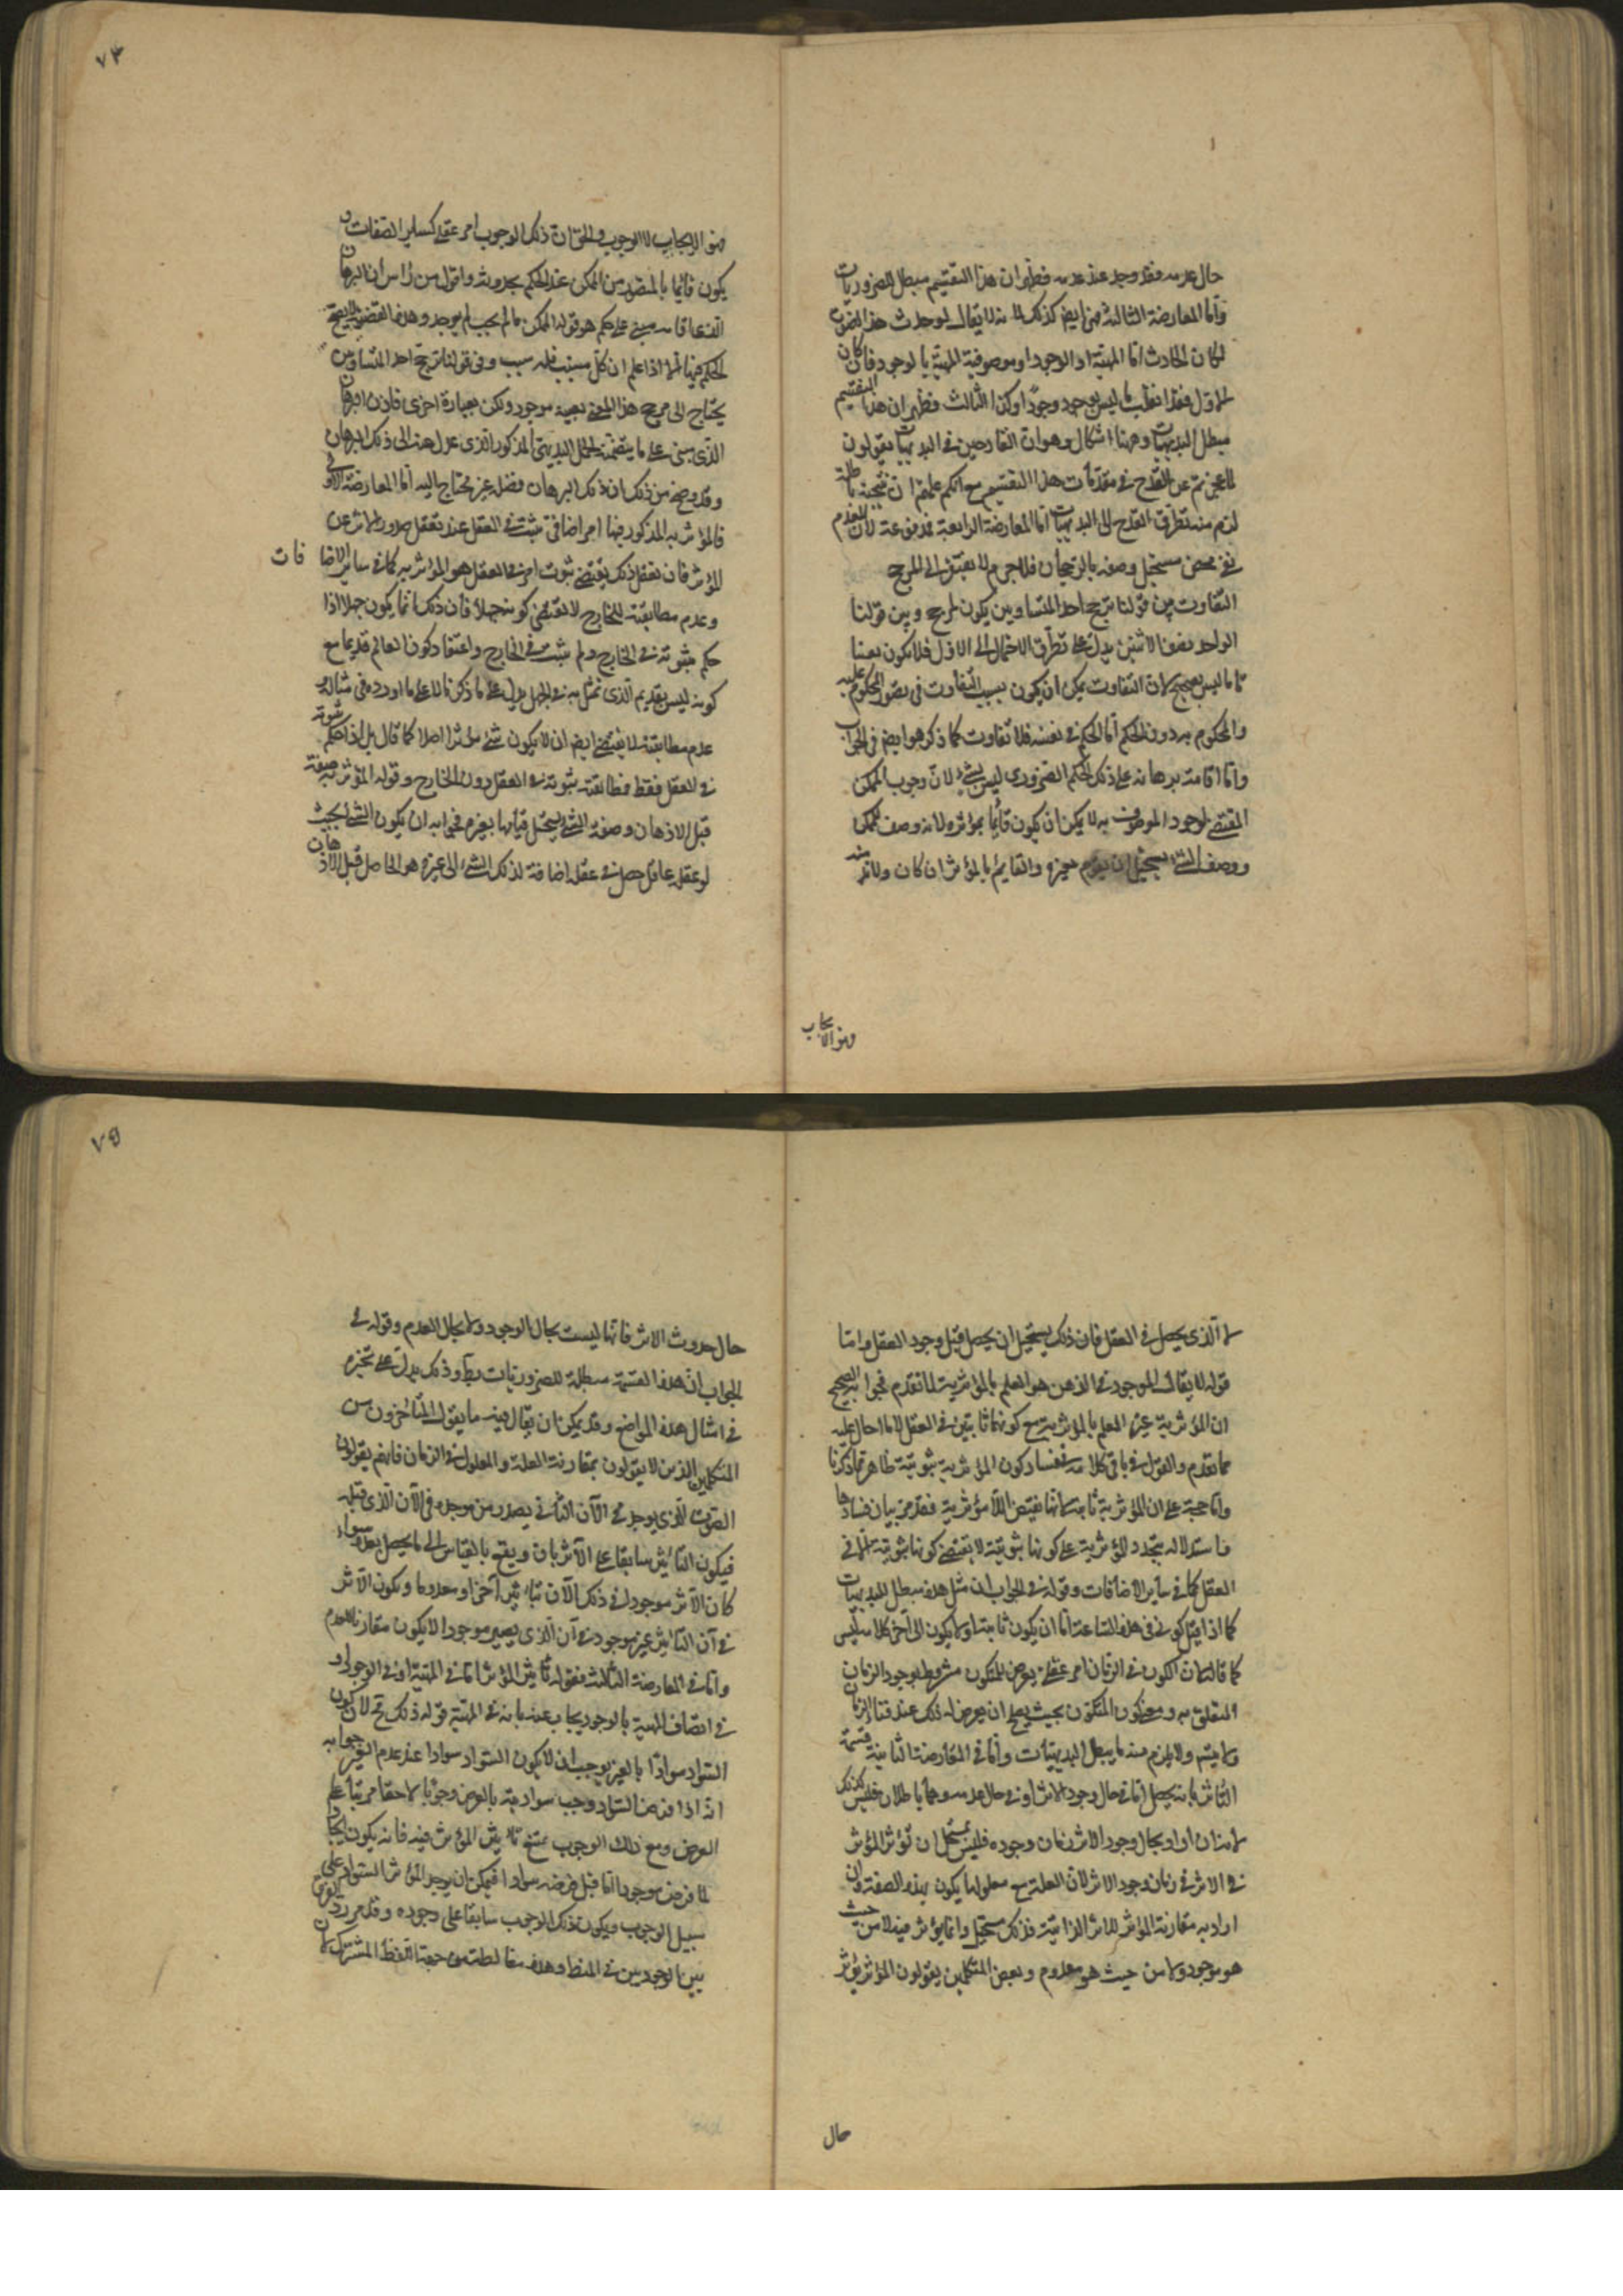 حال عدمه فقد وجد عند عدمه فظهر ان هذا التقسيم مبطل للضروريات
واما المعارضة الثالثة فهي ايضا كذلك لانه لا يقال لو حدث هذا الصوت
لكان الحادث اما المهية او الوجود او موصوفية المهية بالوجود فان كان
الاول فقد انقلب ما ليس بوجود وجودا وكذا الثالث فظهر ان هذا التقسيم
مبطل البديهيات وههنا اشكال وهو ان القادحين في البديهيات يقولون
لما عجزتم عن القدح في مقدمات هذا التقسيم مع انكم علمتم ان نتيجته باطلة
لزم منه تطرق القدح الى البديهيات اما المعارضة الرابعة فمدفوعة لان العدم
نفي محض مستحيل وصفه بالرجحان فلا جرم لا يفتقر الى المرجح
التفاوت بين قولنا ترجح احد المتساويين يكون لمرجح وبين قولنا
الواحد نصف الاثنين يدل على تطرق الاحتمال الى الاول فلا يكون يقينا
تاما ليس بصحيح لان التفاوت يمكن ان يكون بسبب التفاوت في تصور المحكوم عليه
والمحكوم به دون الحكم اما الحكم في نفسه فلا تفاوت كما ذكر هو ايضا في الجواب
واما اقامته برهانه على ذلك الحكم الضروري ليس بشيء لان وجوب الممكن
المقتضي لوجود الموصوف به لا يمكن ان يكون قائما بمؤثره لانه وصف للممكن
ووصف الشيء يستحيل ان يقوم بغيره والقايم بالمؤثر ان كان ولابد
فهو الايجاب
٧٤
فهو الايجاب لا الوجوب والحق ان ذلك الوجوب امر عقلي كساير الصفات و
يكون قائما بالمتصور من الممكن عند الحكم بحدوثه واقول من راس ان البرهان
الذي اقامه مبني على حكم هو قوله الممكن ما لم يجب لم يوجد وهذه القضية لا يصح
الحكم فيها الا اذا علم ان كل مسبب فله سبب وفي قولنا ترجح احد المتساويين
يحتاج الى مرجح هذا المعنى بعينه موجود ولكن بعبارة اخرى فاذن البرهان
الذي بنى على ما يتضمنه الحكم البديهي المذكور الذي عدل عنه الى ذلك البرهان
وقد وضح من ذلك ان ذلك البرهان فضلة غير محتاج اليه اما المعارضة الاولى
فالمؤثرية المذكور فيها امر اضافي يثبت في العقل عند تعقل صدور الاثر عن
المؤثر فان تعقل ذلك يقتضي ثبوت امر في العقل هو المؤثرية كما في ساير الاضافات
وعدم مطابقته للخارج لا يقتضي كونه جهلا فان ذلك انما يكون جهلا اذا
حكم بثبوته في الخارج ولم يثبت في الخارج واعتقاد كون العالم قديما مع
كونه ليس بقديم الذي تمثل به في الجهل يدل على ما ذكرنا لا على ما اورده في مثاله و
عدم مطابقته لا يقتضي ايضا ان لا يكون شيء مؤثرا اصلا كما قال بل اذا حكم بثبوته
في العقل فقط فمطابقته ثبوته في العقل دون الخارج وقوله المؤثرية صفة
قبل الاذهان وصفة الشيء يستحيل قيامها بغيره فجوابه ان يكون الشيء بحيث
لو عقله عاقل حصل في عقله اضافة لذلك الشيء الى غيره هو الحاصل قبل الاذهان
لا الذي يحصل في العقل فان ذلك يستحيل ان يحصل قبل وجود العقل واما
قوله لا يقال الموجود في الذهن هو العلم بالمؤثرية لما تقدم فجوابه الصحيح
ان المؤثرية غير العلم بالمؤثرية مع كونهما ثابتين في العقل لا ما احال عليه
مما تقدم والقول في باقي كلامه في فساد كون المؤثرية ثبوتية ظاهر مما ذكرنا
واما حجته على ان المؤثرية ثابتة لانها نقيض اللامؤثرية فقد مر بيان فسادها
واستدلاله بتجدد المؤثرية على كونها ثبوتية لا يقتضي كونها ثبوتية الا في
العقل كما في ساير الاضافات وقوله في الجواب ان مثل هذه مبطل البديهيات
كما اذا قيل كوني في هذه الساعة اما ان يكون ثابتا او لا يكون الى آخر كلامه ليس
كما قال لان الكون في الزمان امر عقلي يعرض للمتكون مشروط بوجود الزمان
المتعلق به ومعنى كون المتكون بحيث يصح ان يعرض له ذلك عند فناء الزمان
ولا يلزم منه ما يبطل البديهيات واما في المعارضة الثانية قسمة
التأثير بانه يحصل اما في حال وجود الاثر او في حال عدمه وهما باطلان فليس كذلك
لانه ان اراد بحال وجود الاثر زمان وجوده فليس بمستحيل ان تؤثر المؤثر
في الاثر في زمان وجود الاثر لان العلة مع معلولها يكون بهذه الصفة وان
اراد به مقارنة المؤثر للاثر الذاتية فذلك مستحيل وانما يؤثر فيه لا من حيث
هو موجود ولا من حيث هو معدوم وبعض المتكلمين يقولون المؤثر يؤثر
حال
٧٥
حال حدوث الاثر فانها ليست بحال الوجود ولا بحال العدم وقوله في
الجواب ان هذه القسمة مبطلة للضروريات وذلك يدل على تحيره
في امثال هذه المواضع وقد يمكن ان يقال فيه ما يقوله المتأخرون من
المتكلمين الذين لا يقولون بمقارنة العلة والمعلول في الزمان فانهم يقولون
الصوت الذي يوجد في الآن الثاني يصدر من موجده في الآن الذي قبله
فيكون التاثير سابقا على الاثر بان ويقع بالقياس الى ما يحصل بعده سواء
كان الاثر موجودا في ذلك الآن بتاثير آخر او معدوما ويكون الاثر
في آن التاثير غير موجود في آن الذي يصير موجودا لا يكون مقارنا للعدم
واما في المعارضة الثالثة فقوله تأثير المؤثر اما في المهية او في الوجود و
في اتصاف المهية بالوجود يجاب عنه بانه في المهية قوله ذلك مح لان كون
السواد سوادا بالغير يوجب ان لا يكون السواد سوادا عند عدم الغير جوابه
انه اذا فرض السواد وجب سواديته بالفرض وجوبا لاحقا مرتبا على
الفرض ومع ذلك الوجوب يمتنع تاثير المؤثر فيه فانه يكون ايجادا
لما فرض موجودا اما قبل فرضه سوادا فيمكن ان يوجد المؤثر السواد على
سبيل الوجوب ويكون ذلك الوجوب سابقا على وجوده وقد مر الفرق
بين الوجوبين في المنطق وهذه مغالطة من جهة اللفظ المشترك لان